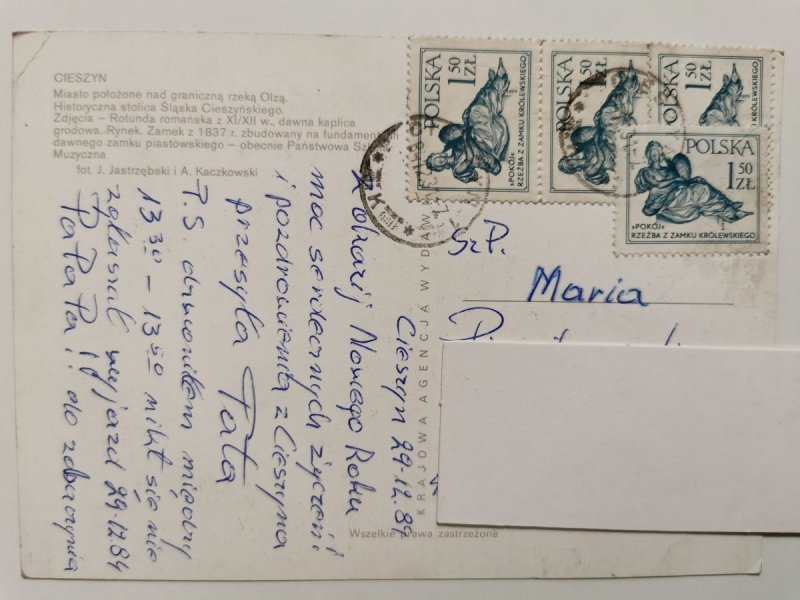 CIESZYN
Miasto położone nad graniczną rzeką Olzą.
Historyczna stolica Śląska Cieszyńskiego.
Zdjęcia – Rotunda romańska z XI/XII w., dawna kaplica
grodowa. Rynek. Zamek z 1837 r. zbudowany na fundamentach
dawnego zamku piastowskiego – obecnie Państwowa
Muzyczna
fot. J. Jastrzębski i A. Kaczkowski
Cieszyn 29.12.84
z okazji Nowego Roku
moc serdecznych życzeń i
i pozdrowienia z Cieszyna
przesyła Tata
P.S. dzwoniłem między
13 30 – 13 50 nikt się nie
zgłaszał wyjazd 29.12.84
Pa Pa Pa i do zobaczynia
KRAJOWA AGENCJA WYDAW
Wszelkie prawa zastrzeżone
POLSKA
1 50 ZŁ
»POKÓJ«
RZEŹBA Z ZAMKU KRÓLEWSKIEGO
POLSKA
1 50 ZŁ
»POKÓJ«
RZEŹBA Z ZAMKU KRÓLEWSKIEGO
POLSKA
1 50 ZŁ
KRÓLEWSKIEGO
POLSKA
1 50 ZŁ
»POKÓJ«
RZEŹBA Z ZAMKU KRÓLEWSKIEGO
Sz.P.
Maria